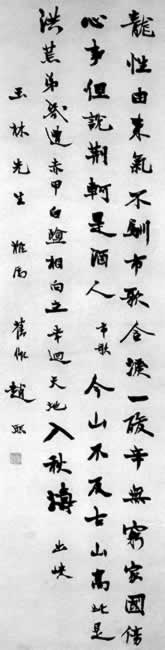 龍性由來氣不馴市歌含淚一酸辛無窮家國傷
心事但說荊軻是酒人 市歌 今山不及古山高此是
洪荒第幾遭赤甲白鹽相向立半迴天地入秋濤 出峽
玉林先生 雅屬 舊作 趙熙